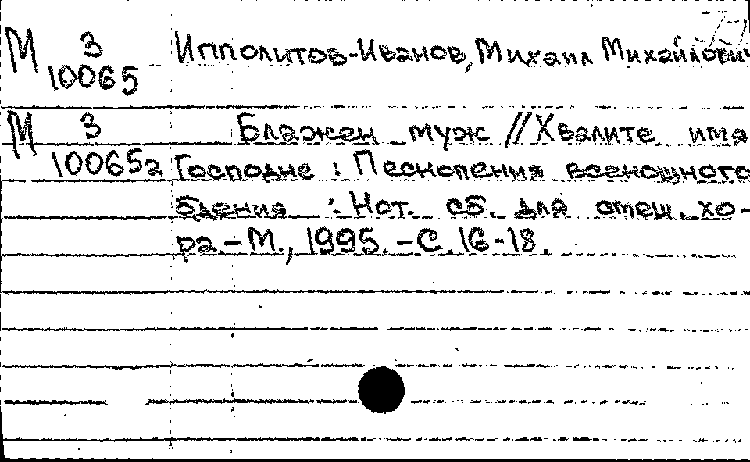 М 3 Ипполитов-Иванов, Михаил Михайлович
10065
М 3 Блажен муж // Хвалите имя
10065а Господне : Песнопения всенощного
бдения : Нот. сб. для смеш. хо-
ра. - М., 1995. - С. 16-18.